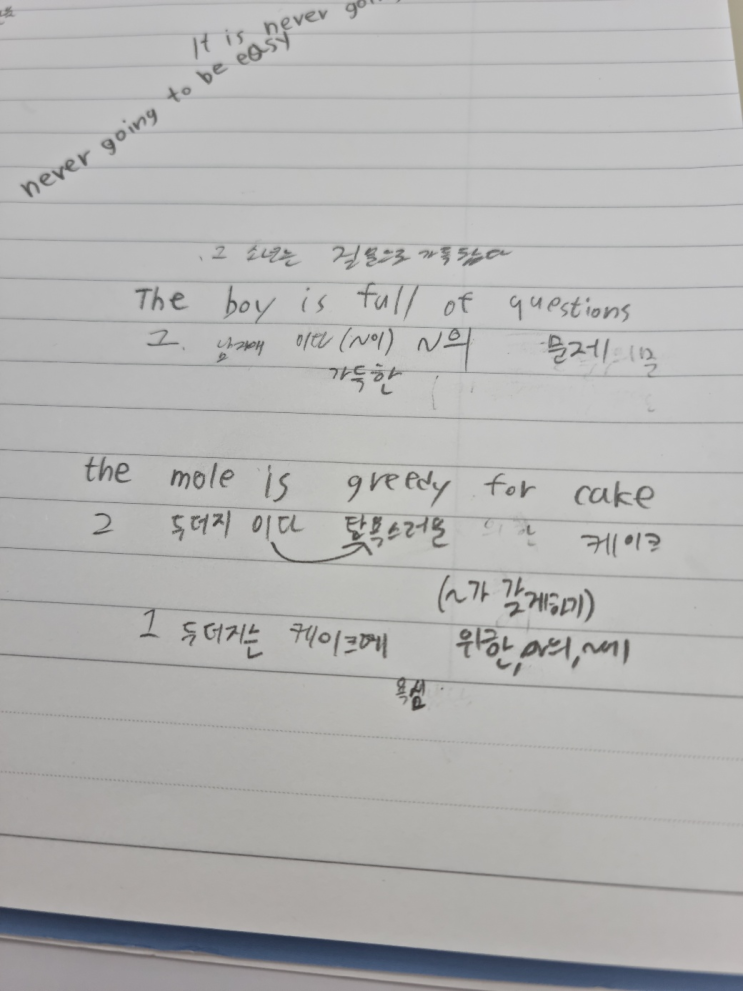 It is never
never going to be easy
그 소년는 질문으로 가득
The boy is full of questions
그 남자애 이다 (~이) ~의 문제
가득한
the mole is greedy for cake
2 두더지 이다 탐욕스러운 케이크
(~가
1 두더지는 케이크에 위한, ~의, ~에
욕심